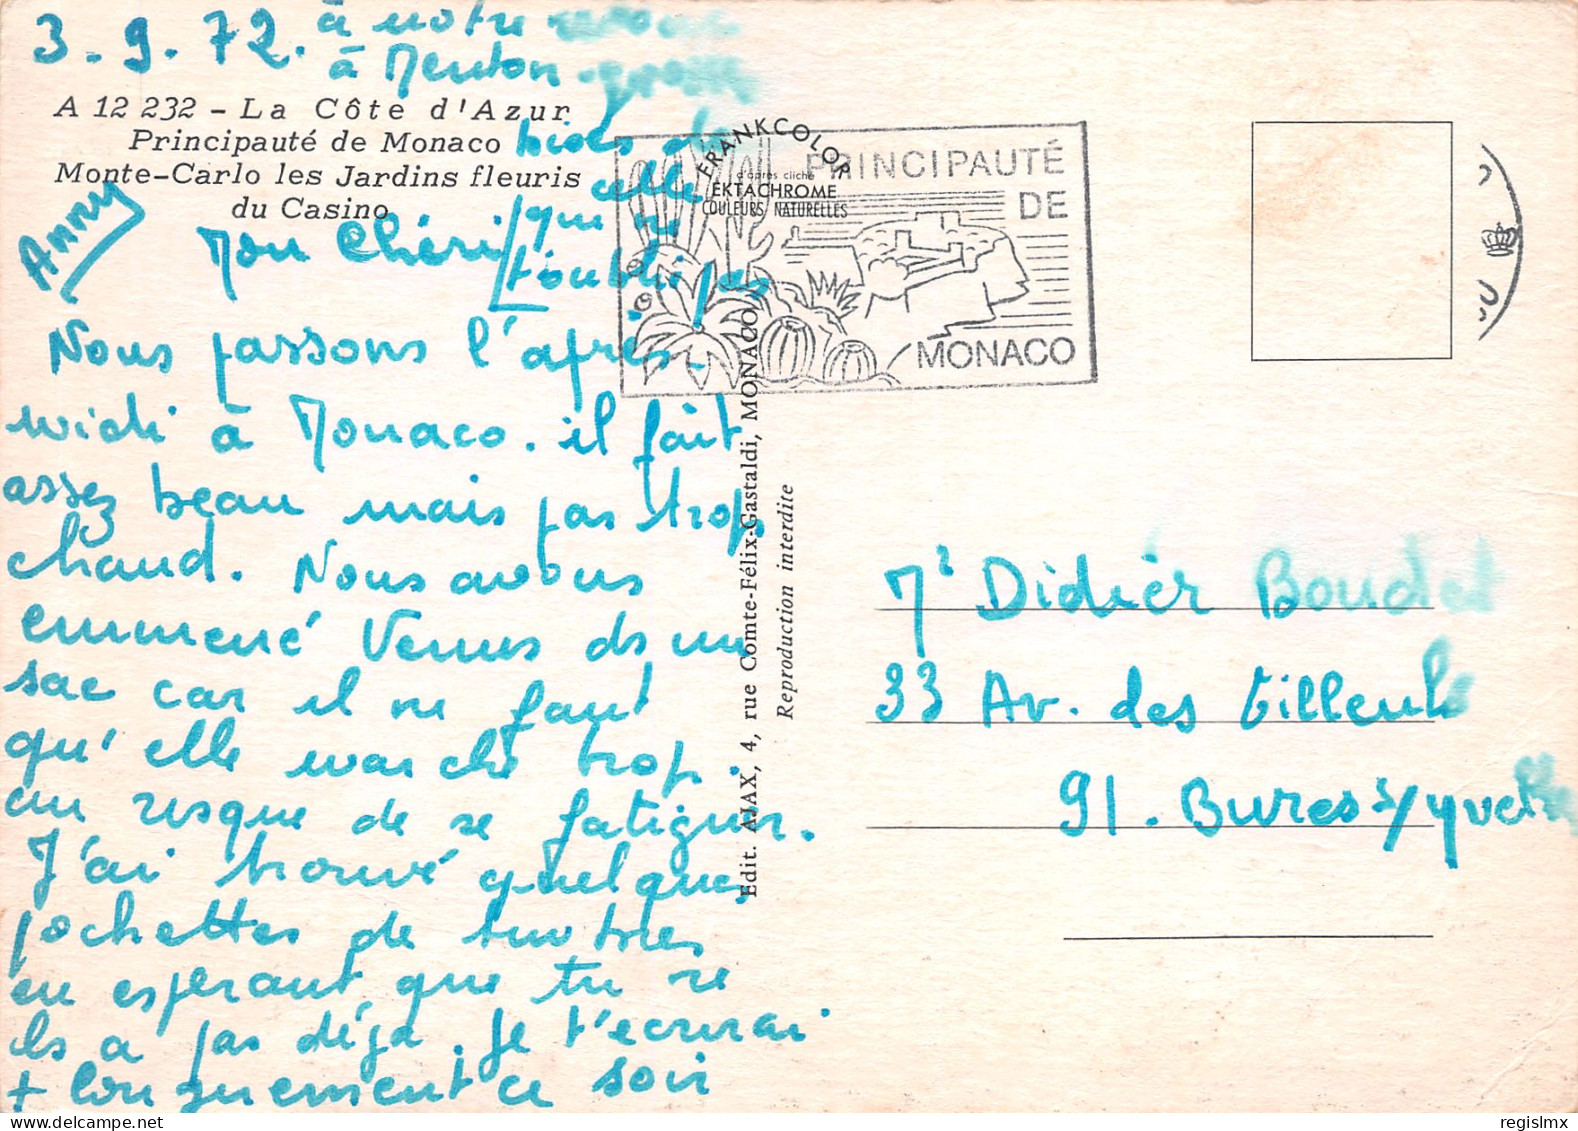 3.9.72.
A 12 232 – La Côte d'Azur
Principauté de Monaco
Monte-Carlo les Jardins fleuris
du Casino
Mon Chéri
Nous passons l'après-
midi à Monaco. il fait
assez beau mais pas trop
chaud. Nous avons
emmené Venus ds un
sac car il ne faut
qu'elle marche trop.
au risque de se fatiguer.
J'ai trouvé quelques
pochettes de timbres
en espérant que tu ne
les a pas déjà. Je t'écrirai
+ longuement ce soir
à notre
à Menton
bises de
celle
qui ne
t'oublie pas
Anny
FRANKCOLOR
d'après cliché
EKTACHROME
COULEURS NATURELLES
PRINCIPAUTÉ
DE
MONACO
Edit. AJAX, 4, rue Comte-Félix-Gastaldi, MONACO
Reproduction interdite
Mr Didier Boudet
33 Av. des tilleuls
91. Bures s/yvette
regislmx